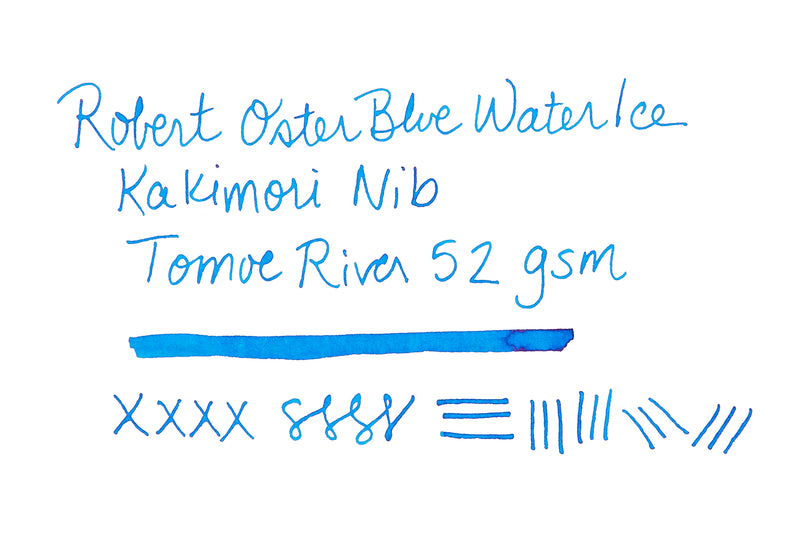 Robert Oster Blue Water Ice
Kakimori Nib
Tomoe River 52 gsm
xxxx